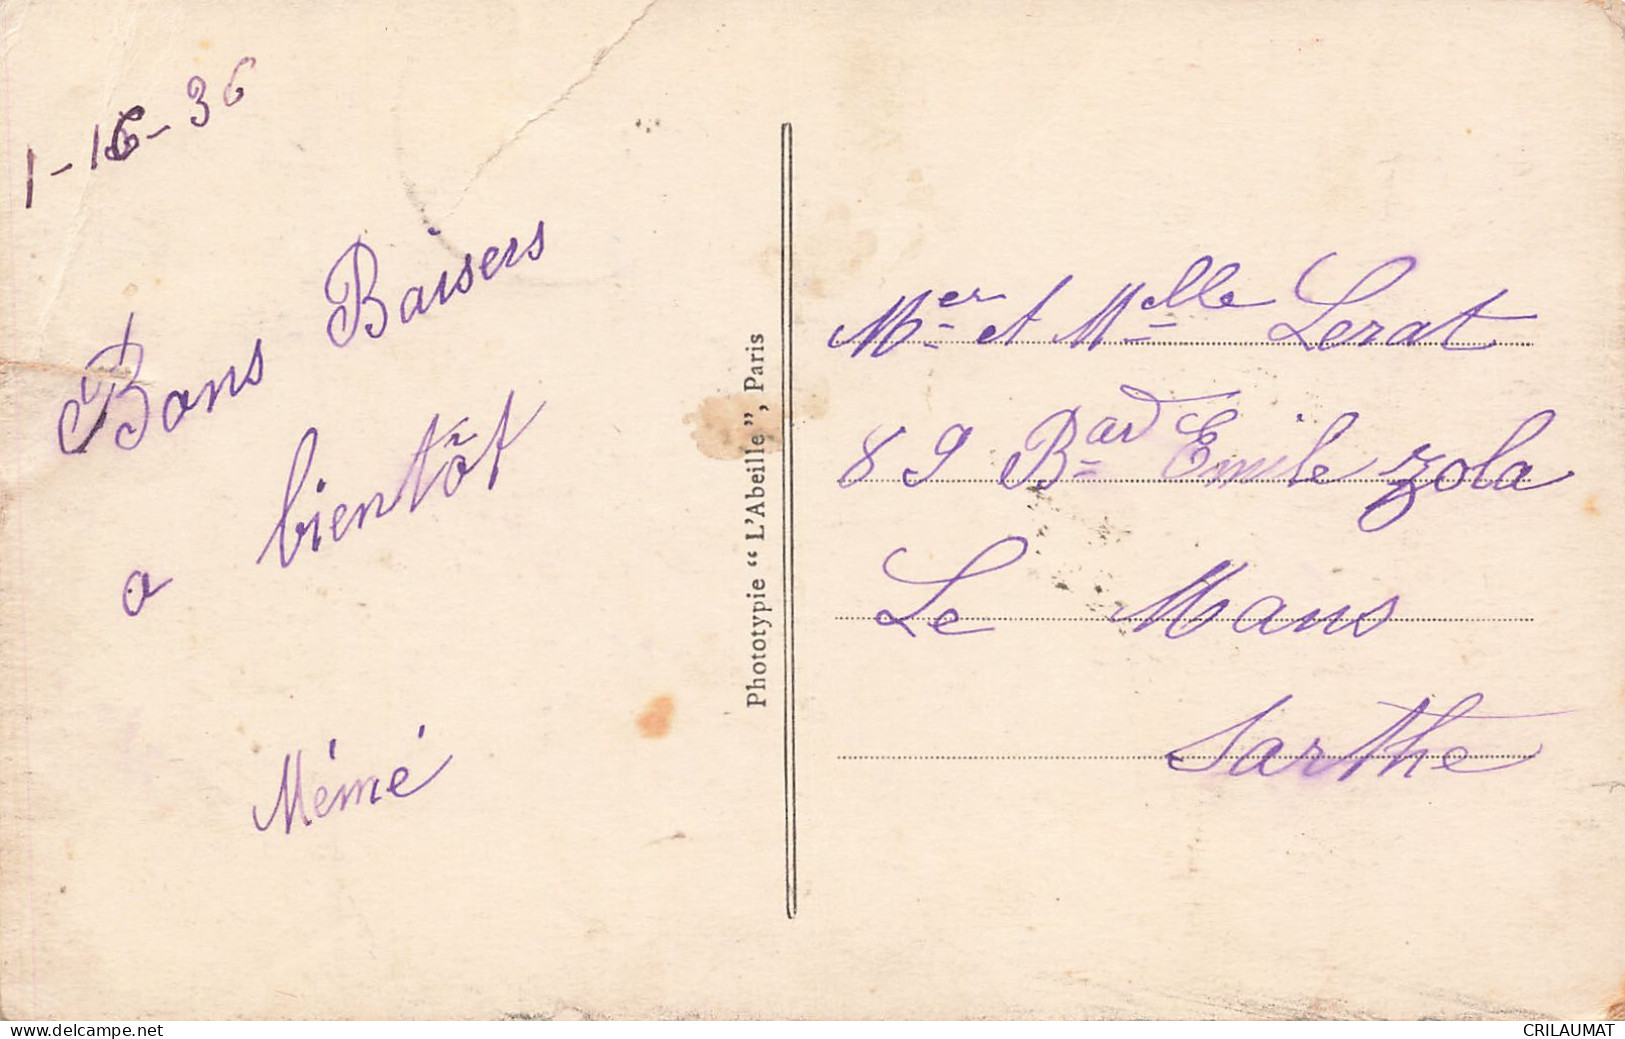 1-16-36
Bons Baisers
a bientôt
Mémé
Phototypie “ L'Abeille ”, Paris
Mer et Melle Lerat
89 Bard Emile Zola
Le Mans
Sarthe
www.delcampe.net
CRILAUMAT